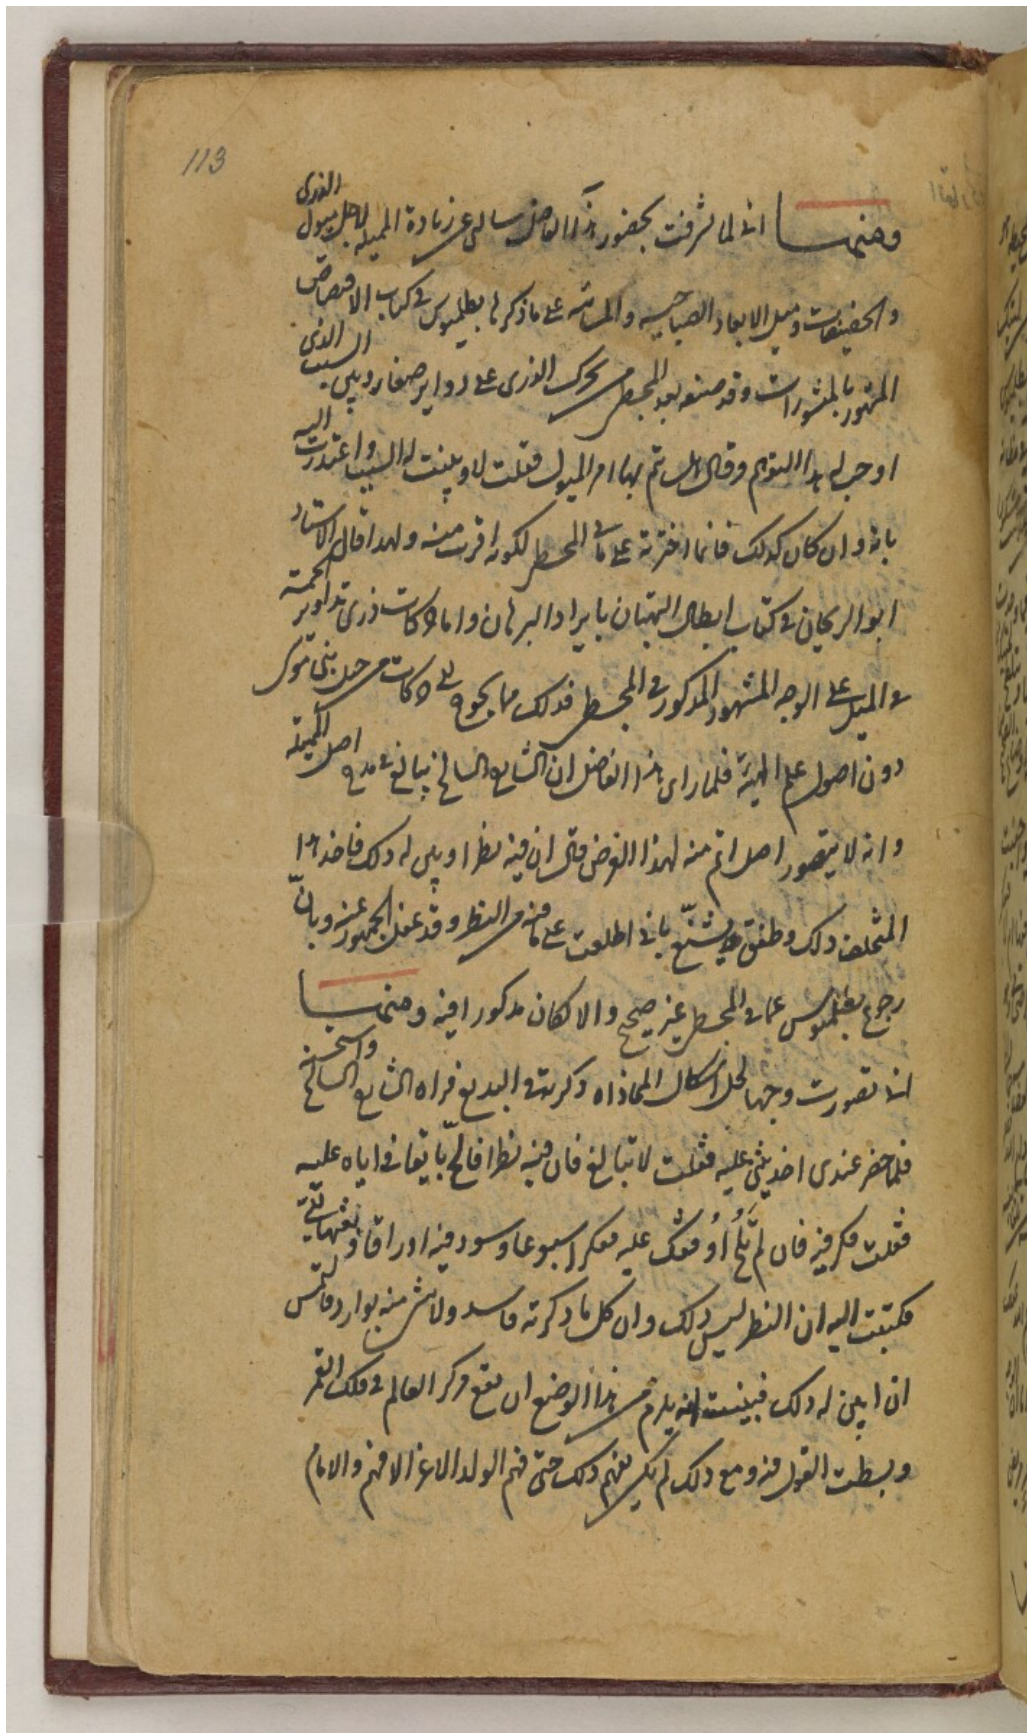 113
ومنها انى لما تشرفت بحضور هذا الفاضل سالنى عن زيادة المميلة لاجل ميول الذرى
والحضيضات وميل الابعاد الصباحية والمسائية على ما ذكرها بطلميوس فى كتاب الاقتصاص
المشهور بالمنشورات وقد صنفه بعد المجسطى من تحرك الذرى على دواير صغار وبين السبب الذى
اوجب له هذا التوهم وقال هل تم بها امر الميول فقلت لا وبينت له السبب واعتذرت اليه
بانه وان كان كذلك فانما اخترته على ما فى المجسطى لكونه اقرب منه ولهذا قال الاستاد
ابو الريحان فى كتاب ابطال البهتان بايراد البرهان واما حركات ذرى تداوير الخمسة
فى الميل على الوجه المشهور المذكور فى المجسطى فذلك مما يحوج الى حركات من حيل بنى موسى
دون اصول علم الهيئة فلما راى هذا الفاضل ان الشارح السالخ يبالغ فى مدح اصل المميلة
وانه لا يتصور اصل اتم منه لهذا الغرض قال ان فيه نظرا وبين له ذلك فاخذ هذا
المتخلف ذلك وطفق يشنّع بانى اطلعت على ما فيه من النظر وقد غفل الجمهور عنه وبانّ
رجوع بطلميوس عما فى المجسطى غير صحيح والا لكان مذكورا فيه ومنها
انى تصورت وجها لحل اشكال المحاذاه ذكرته فى البديع فراه الشارح السالخ واستحسنه
فلما حضر عندى اخذ يثنى عليه فقلت لا تبالغ فان فيه نظرا فالحّ بايقافى اياه عليه
فقلت فكر فيه فان لم اوقفك عليه ففكر اسبوعا وسود فيه اوراقا وبعثها الىّ
فكتبت اليه ان النظر ليس ذلك وان كل ما ذكرته فاسد ولا شىء منه بوارد فالتمس
ان ابين له ذلك فبينت انه يلزم من هذا الوضع ان يقع مركز العالم فى فلك القمر
وبسطت القول فيه ومع ذلك لم يكن يفهم ذلك حتى فهم الولد الاعز الافهم والامام